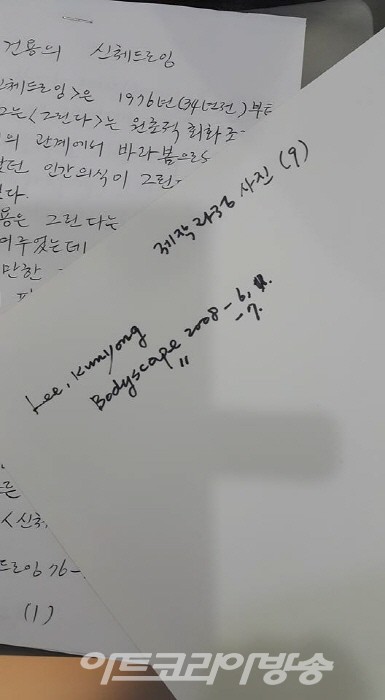 건용의 신체드로잉
신체드로잉>은 1976년(34년전)부터
는 <그린다>는 원초적 회화 조-
의 관계에서 바라봄으로
던 인간의식이 그린-
다.
용은 그린다는
여주었는데
만한
제작과정 사진 (9)
Lee, Kunyong
Bodyscape 2008-6,
" -7.
른
<신체,
드로잉 76-
(1)
아트코리아방송